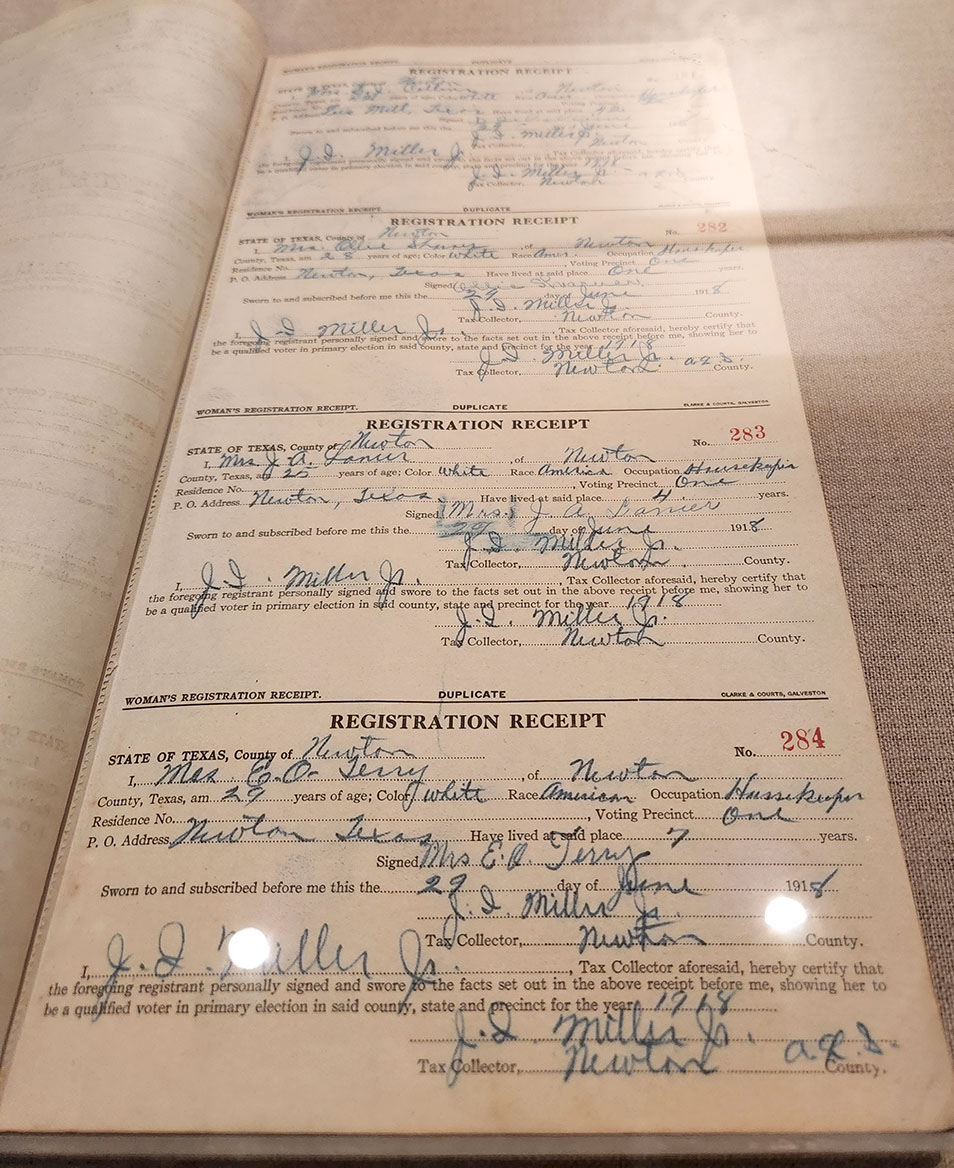 WOMAN'S REGISTRATION RECEIPT. DUPLICATE
REGISTRATION RECEIPT
Newton
Mrs. of Newton
White
Texas
J. I. Miller Jr.
Newton
J. I. Miller Jr. Tax Collector aforesaid, hereby certify that
the foregoing registrant personally signed and swore to the facts set out in the above receipt before me, showing her to
be a qualified voter in primary election in said county, state and precinct for the year 1918
J. I. Miller Jr.
Tax Collector, Newton
WOMAN'S REGISTRATION RECEIPT. DUPLICATE
REGISTRATION RECEIPT
STATE OF TEXAS, County of Newton No. 282
I, Mrs. Ollie, of Newton
County, Texas, am 28 years of age; Color White Race Amer. Occupation Housekeeper
Residence No. , Voting Precinct One
P. O. Address Newton, Texas Have lived at said place One years.
Signed Ollie
Sworn to and subscribed before me this the 29 day of June 1918
J. I. Miller Jr.
Tax Collector, Newton County.
I, J. I. Miller Jr., Tax Collector aforesaid, hereby certify that
the foregoing registrant personally signed and swore to the facts set out in the above receipt before me, showing her to
be a qualified voter in primary election in said county, state and precinct for the year 1918
J. I. Miller Jr.
Tax Collector, Newton County.
WOMAN'S REGISTRATION RECEIPT. DUPLICATE CLARKE & COURTS, GALVESTON
REGISTRATION RECEIPT
STATE OF TEXAS, County of Newton No. 283
I, Mrs J. A. Lanier, of Newton
County, Texas, am 25 years of age; Color White Race American Occupation Housekeeper
Residence No. , Voting Precinct One
P. O. Address Newton, Texas Have lived at said place 4 years.
Signed (Mrs.) J. A. Lanier
Sworn to and subscribed before me this the 29 day of June 1918
J. I. Miller Jr.
Tax Collector, Newton County.
I, J. I. Miller Jr., Tax Collector aforesaid, hereby certify that
the foregoing registrant personally signed and swore to the facts set out in the above receipt before me, showing her to
be a qualified voter in primary election in said county, state and precinct for the year 1918
J. I. Miller Jr.
Tax Collector, Newton County.
WOMAN'S REGISTRATION RECEIPT. DUPLICATE CLARKE & COURTS, GALVESTON
REGISTRATION RECEIPT
STATE OF TEXAS, County of Newton No. 284
I, Mrs E. O. Terry, of Newton
County, Texas, am 29 years of age; Color White Race American Occupation Housekeeper
Residence No. , Voting Precinct One
P. O. Address Newton Texas Have lived at said place 7 years.
Signed Mrs E. O. Terry
Sworn to and subscribed before me this the 29 day of June 1918
J. I. Miller Jr.
Tax Collector, Newton County.
I, J. I. Miller Jr., Tax Collector aforesaid, hereby certify that
the foregoing registrant personally signed and swore to the facts set out in the above receipt before me, showing her to
be a qualified voter in primary election in said county, state and precinct for the year 1918
J. I. Miller Jr.
Tax Collector, Newton County.